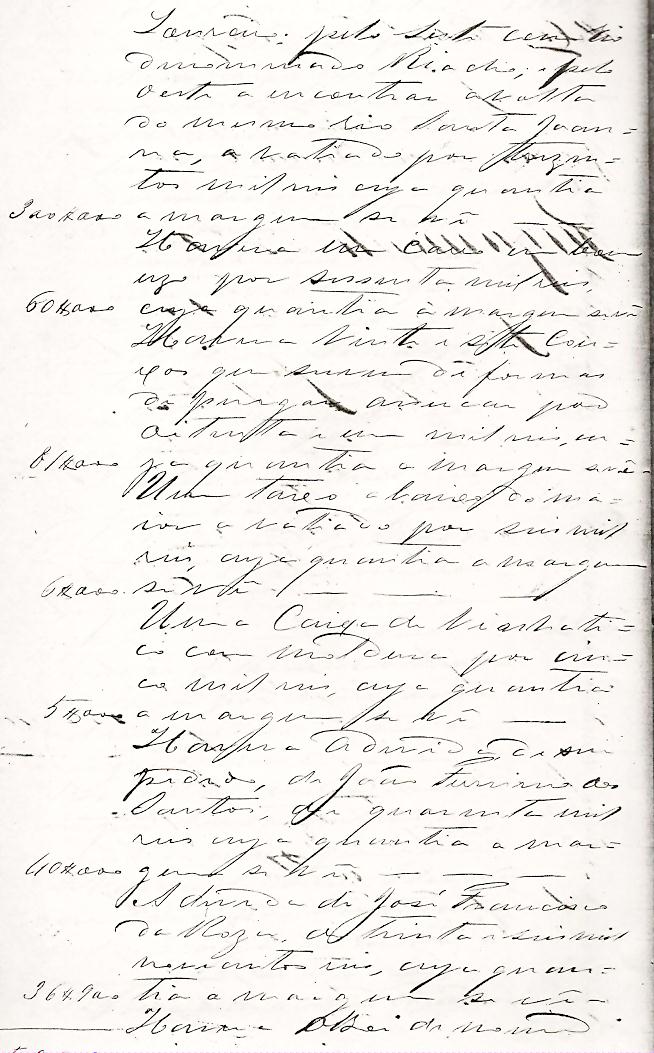 pelo Sul com
denominado Riacho, e pelo
Oeste a encontrar a volta
do mesmo rio Santa Joan-
na, avaliado por trezen-
tos mil reis cuja quantia
300#000 a margem se vê
Haverá um
por sessenta mil reis,
60#000 cuja quantia á margem se vê
Haverá Vinte e sete Cou-
ços que servem de formas
de purgar assucar por
oitenta e um mil reis, cu-
81#000 ja quantia a margem se vê
Um taxo
avaliado por seis mil
reis, cuja quantia a margem
6#000 se vê
Uma Caixa de Vinhati-
co com moldura por cin-
co mil reis, cuja quantia
5#000 a margem se vê
Haverá a divida
de João
Santos, de quarenta mil
reis cuja quantia a mar-
40#000 gem se vê
A divida de José Francisco
da Roza, de trinta e seis mil
novecentos reis, cuja quan-
36#900 tia a margem se vê
Haverá